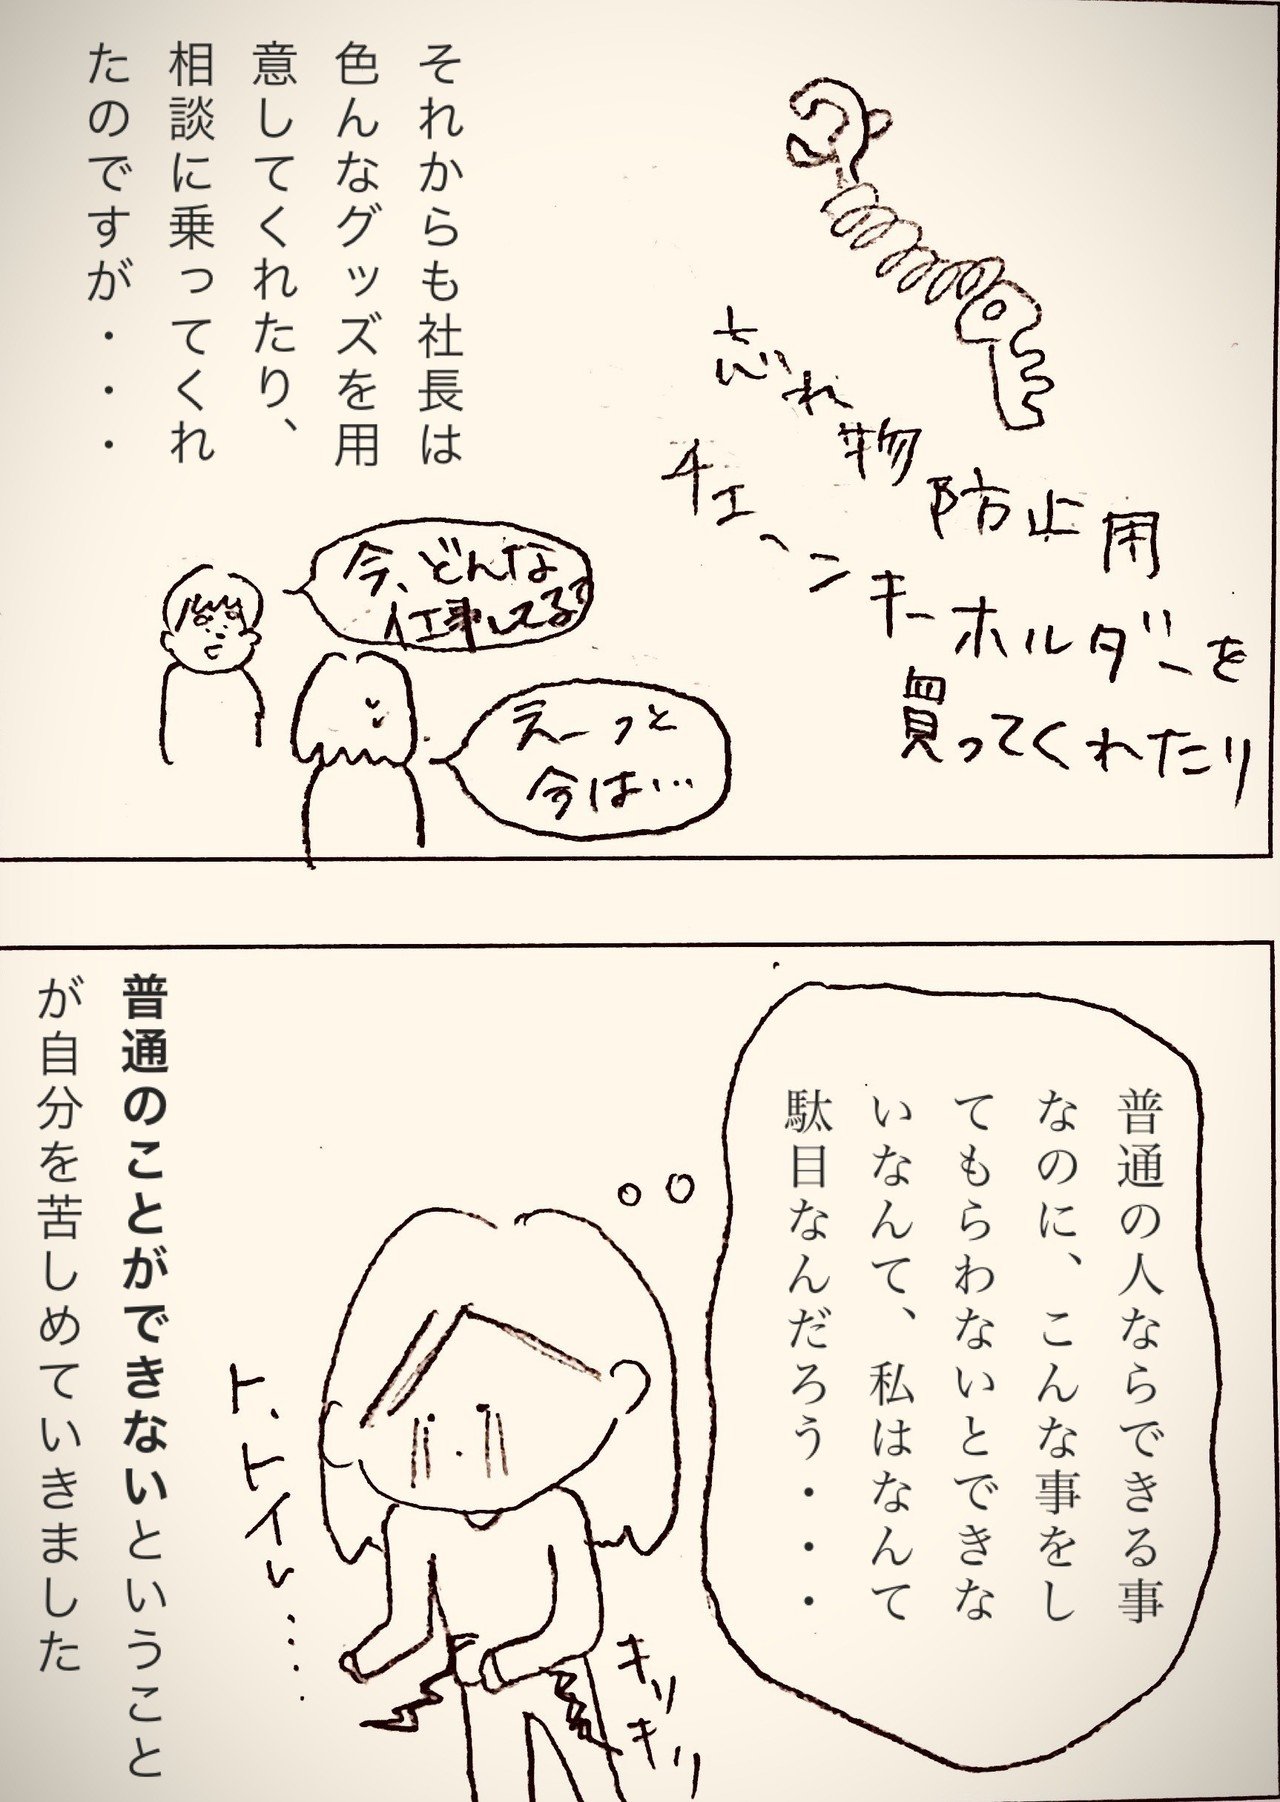 忘れ物防止用
チェーンキーホルダーを
買ってくれたり
それからも社長は
色んなグッズを用
意してくれたり、
相談に乗ってくれ
たのですが・・・
今、どんな
仕事してる?
えーっと
今は…
普通の人ならできる事
なのに、こんな事をし
てもらわないとできな
いなんて、私はなんて
駄目なんだろう・・・
キリ
キリ
ト、トイレ…
普通のことができないということ
が自分を苦しめていきました